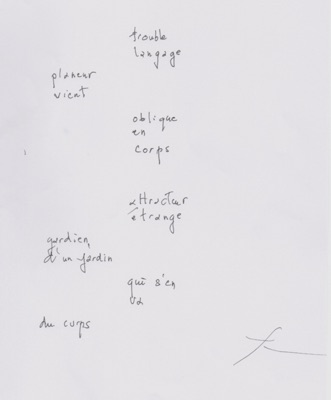 trouble
langage
planeur
vient
oblique
en
corps
attracteur
étrange
gardien
d'un jardin
qui s'en
va
du corps